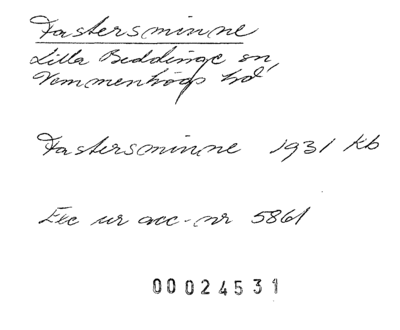 Fastersminne
Lilla Beddinge sn,
Vemmenhögs hd
Fastersminne 1931 kb
Exc ur acc-nr 5861
00024531